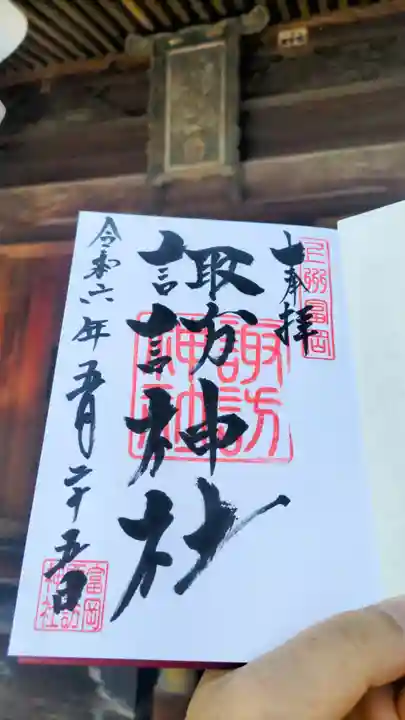 奉拝
上州富岡
諏訪神社
諏訪神社
令和六年五月二十五日
富岡諏訪神社